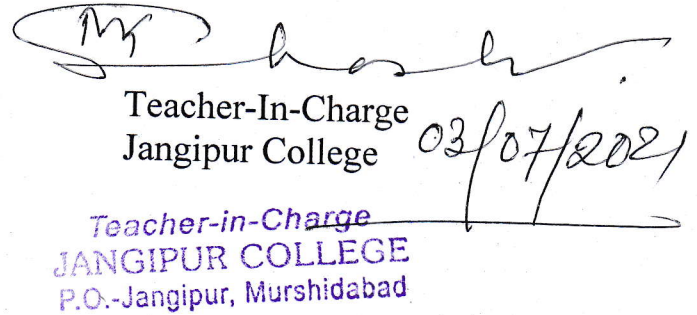 Teacher-In-Charge
Jangipur College 03/07/2021
Teacher-in-Charge
JANGIPUR COLLEGE
P.O.-Jangipur, Murshidabad